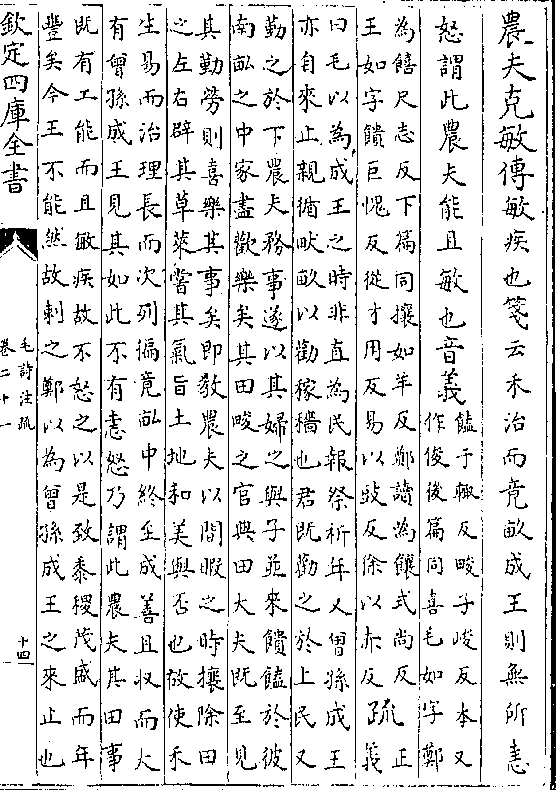 農夫克敏傳敏疾也箋云禾治而竟畝成王則無所恚
怒謂此農夫能且敏也音義
饁于輒反畯子峻反本又
作俊後篇同喜毛如字鄭
為饎尺志反下篇同攘如羊反鄭讀為饟式尚反
王如字饋巨愧反從才用反易以豉反徐以赤反
疏
正
義
曰毛以為成王之時非直為民報祭祈年又曾孫成王
亦自來止親循畎畝以勸稼穡也君既勸之於上民又
勤之於下農夫務事遂以其婦之與子並來饋饁於彼
南畝之中家盡歡樂矣其田畯之官與田大夫既至見
其勤勞則喜樂其事矣即教農夫以間暇之時攘除田
之左右辟其草萊嘗其氣旨土地和美與否也故使禾
生易而治理長而次列徧竟畝中終至成善且收而大
有曾孫成王見其如此不有恚怒乃謂此農夫其田事
既有工能而且敏疾故不怒之以是致黍稷茂盛而年
豐矣今王不能然故刺之鄭以為曾孫成王之來止也
欽定四庫全書
毛詩注疏
卷二十一
十四